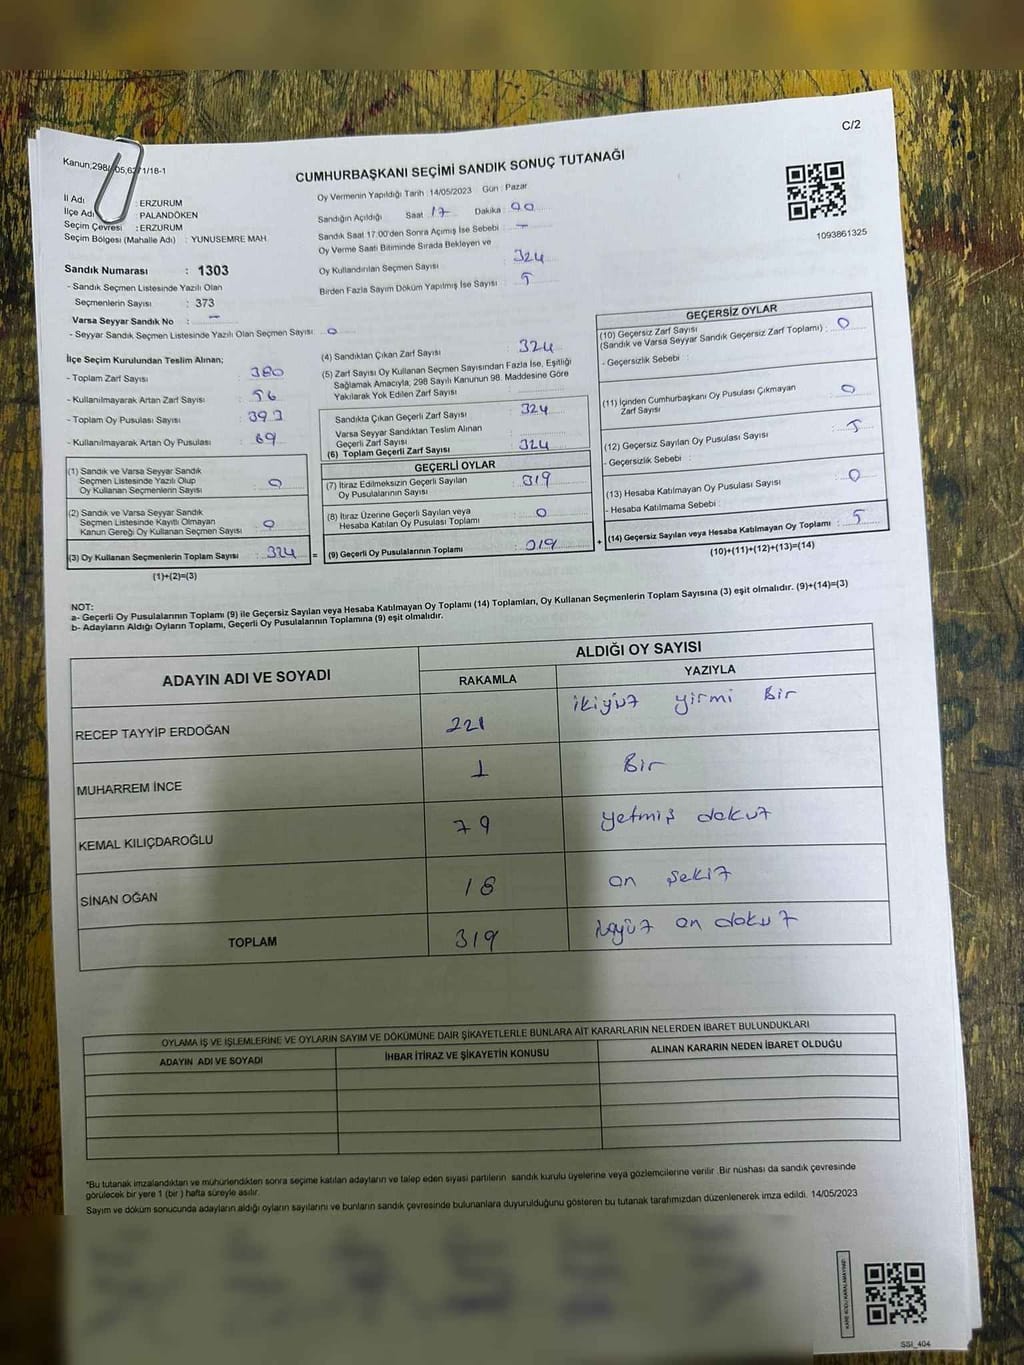 C/2
Kanun;298/ 05,6271/18-1
CUMHURBAŞKANI SEÇİMİ SANDIK SONUÇ TUTANAĞI
İl Adı : ERZURUM
İlçe Adı : PALANDÖKEN
Seçim Çevresi : ERZURUM
Seçim Bölgesi (Mahalle Adı) : YUNUSEMRE MAH
Oy Vermenin Yapıldığı Tarih : 14/05/2023 Gün : Pazar
Sandığın Açıldığı Saat 17 Dakika 00
Sandık Saat 17:00'den Sonra Açımış İse Sebebi : -
Oy Verme Saati Bitiminde Sırada Bekleyen ve
Oy Kullandırılan Seçmen Sayısı : 324
Birden Fazla Sayım Döküm Yapılmış İse Sayısı : 5
1093861325
Sandık Numarası : 1303
- Sandık Seçmen Listesinde Yazılı Olan
Seçmenlerin Sayısı : 373
Varsa Seyyar Sandık No : -
- Seyyar Sandık Seçmen Listesinde Yazılı Olan Seçmen Sayısı : 0
İlçe Seçim Kurulundan Teslim Alınan;
- Toplam Zarf Sayısı : 380
- Kullanılmayarak Artan Zarf Sayısı : 56
- Toplam Oy Pusulası : 393
- Kullanılmayarak Artan Oy Pusulası : 69
(1) Sandık ve Varsa Seyyar Sandık
Seçmen Listesinde Yazılı Olup
Oy Kullanan Seçmenlerin Sayısı : 0
(2) Sandık ve Varsa Seyyar Sandık
Seçmen Listesinde Kayıtlı Olmayan
Kanun Gereği Oy Kullanan Seçmen Sayısı : 0
(3) Oy Kullanan Seçmenlerin Toplam Sayısı : 324 =
(1)+(2)=(3)
(4) Sandıktan Çıkan Zarf Sayısı : 324
(5) Zarf Sayısı Oy Kullanan Seçmen Sayısından Fazla İse, Eşitliği
Sağlamak Amacıyla, 298 Sayılı Kanunun 98. Maddesine Göre
Yakılarak Yok Edilen Zarf Sayısı :
Sandıkta Çıkan Geçerli Zarf Sayısı : 324
Varsa Seyyar Sandıktan Teslim Alınan
Geçerli Zarf Sayısı :
(6) Toplam Geçerli Zarf Sayısı : 324
GEÇERLİ OYLAR
(7) İtiraz Edilmeksizin Geçerli Sayılan
Oy Pusulalarının Sayısı : 319
(8) İtiraz Üzerine Geçerli Sayılan veya
Hesaba Katılan Oy Pusulası Toplamı : 0
(9) Geçerli Oy Pusulalarının Toplamı : 319 +
GEÇERSİZ OYLAR
(10) Geçersiz Zarf Sayısı
(Sandık ve Varsa Seyyar Sandık Geçersiz Zarf Toplamı) : 0
- Geçersizlik Sebebi :
(11) İçinden Cumhurbaşkanı Oy Pusulası Çıkmayan
Zarf Sayısı : 0
(12) Geçersiz Sayılan Oy Pusulası Sayısı : 5
- Geçersizlik Sebebi :
(13) Hesaba Katılmayan Oy Pusulası Sayısı : 0
- Hesaba Katılmama Sebebi :
(14) Geçersiz Sayılan veya Hesaba Katılmayan Oy Toplamı : 5
(10)+(11)+(12)+(13)=(14)
NOT:
a- Geçerli Oy Pusulalarının Toplamı (9) ile Geçersiz Sayılan veya Hesaba Katılmayan Oy Toplamı (14) Toplamları, Oy Kullanan Seçmenlerin Toplam Sayısına (3) eşit olmalıdır. (9)+(14)=(3)
b- Adayların Aldığı Oyların Toplamı, Geçerli Oy Pusulalarının Toplamına (9) eşit olmalıdır.
ADAYIN ADI VE SOYADI
ALDIĞI OY SAYISI
RAKAMLA YAZIYLA
RECEP TAYYİP ERDOĞAN 221 ikiyüz yirmi Bir
MUHARREM İNCE 1 Bir
KEMAL KILIÇDAROĞLU 79 yetmiş dokuz
SİNAN OĞAN 18 on sekiz
TOPLAM 319 üçyüz on dokuz
OYLAMA İŞ VE İŞLEMLERİNE VE OYLARIN SAYIM VE DÖKÜMÜNE DAİR ŞİKAYETLERLE BUNLARA AİT KARARLARIN NELERDEN İBARET BULUNDUKLARI
ADAYIN ADI VE SOYADI İHBAR İTİRAZ VE ŞİKAYETİN KONUSU ALINAN KARARIN NEDEN İBARET OLDUĞU
*Bu tutanak imzalandıktan ve mühürlendikten sonra seçime katılan adayların ve talep eden siyasi partilerin sandık kurulu üyelerine veya gözlemcilerine verilir .Bir nüshası da sandık çevresinde
görülecek bir yere 1 (bir ) hafta süreyle asılır.
Sayım ve döküm sonucunda adayların aldığı oyların sayılarını ve bunların sandık çevresinde bulunanlara duyurulduğunu gösteren bu tutanak tarafımızdan düzenlenerek imza edildi. 14/05/2023
KARE KODU KARALAMAYINIZ!
SSI_404